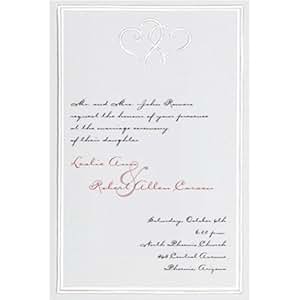 Mr. and Mrs. John Romans
request the honour of your presence
at the marriage ceremony
of their daughter
Leslie Ann
&
Robert Allen Carson
Saturday, October 4th
6:00 p.m.
North Phoenix Church
Central Avenue
Phoenix, Arizona